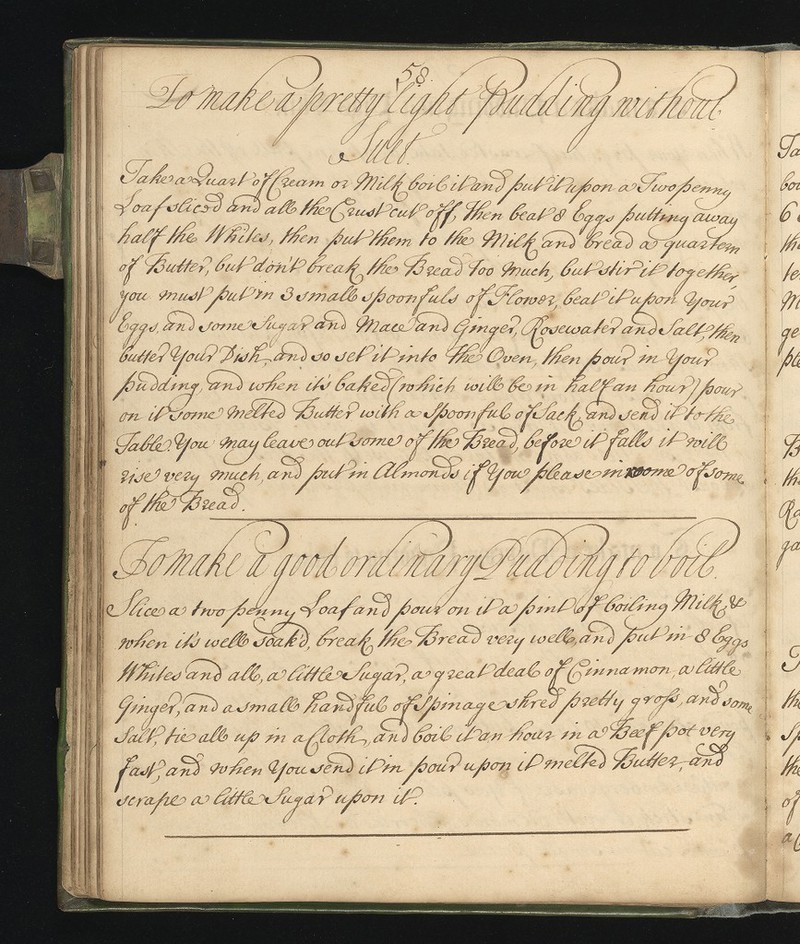 58.
To make a pretty light Pudding without
Suet.
Take a Quart of Cream or Milk boil it and put it upon a Two penny
Loaf sliced and all the Crust cut off, then beat 8 Eggs putting away
half the Whites, then put them to the Milk and bread a quartern
of Butter, but don't break the Bread too much, but stir it together,
you must put in 3 small spoonfuls of Flower, beat it upon your
Eggs, and some Sugar and Mace and Ginger, Rosewater and Salt, then
butter Your Dish, and so set it into the Oven, then pour in Your
pudding, and when it's baked (which will be in half an hour) pour
on it some melted Butter with a spoonful of Sack, and send it to the
Table. You may leave out some of the Bread, before it falls it will
rise very much, and put in Almonds if You please in roome of some
of the Bread.
To make a good ordinary Pudding to boil.
Slice a two penny Loaf and pour on it a pint of boiling Milk, &
when it's well soak'd, break the Bread very well, and put in 8 Eggs
Whites and all, a little Sugar, a great deal of Cinnamon, a little
Ginger, and a small handful of Spinage shred pretty gross, and some
Salt, tie all up in a Cloth, and boil it an hour in a Beef pot very
fast, and when You send it in pour upon it melted Butter, and
scrape a little Sugar upon it.